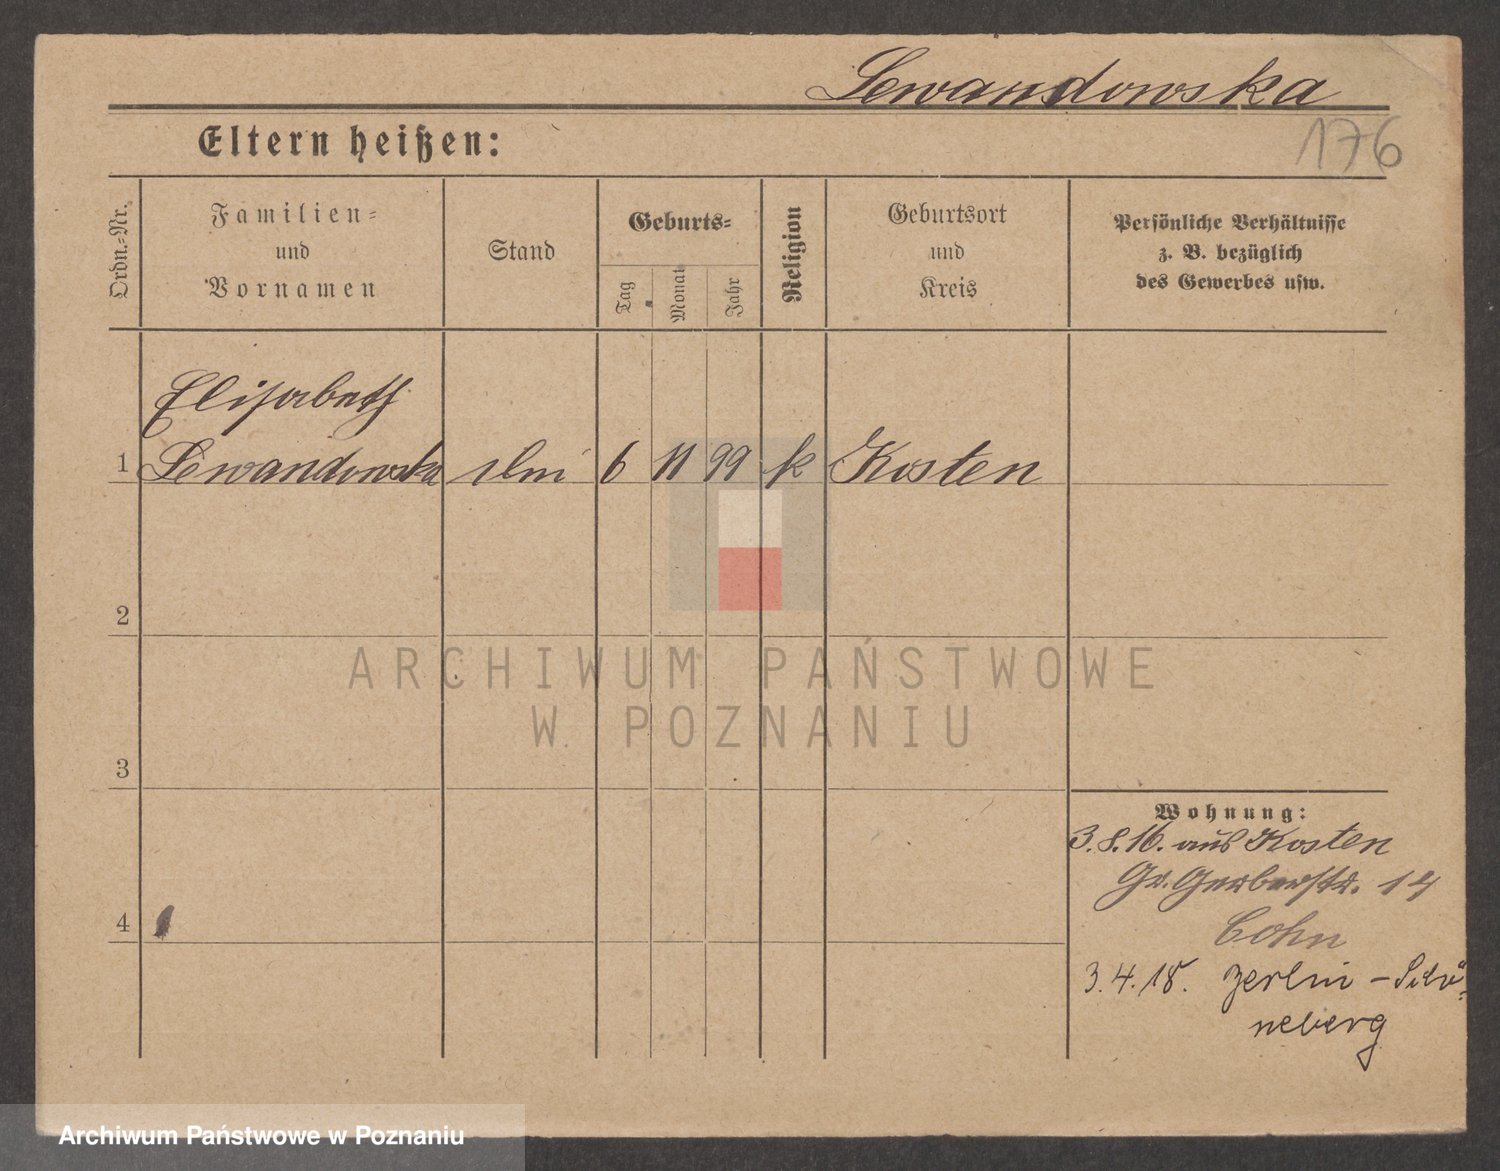 Lewandowska
Eltern heißen:
176
Ordn.-Nr.
Familien-
und
Vornamen
Stand
Geburts-
Tag
Monat
Jahr
Religion
Geburtsort
und
Kreis
Persönliche Verhältnisse
z. B. bezüglich
des Gewerbes usw.
Elisabeth
1 Lewandowska 6 11 99 k Kosten
2
ARCHIWUM PAŃSTWOWE
W POZNANIU
3
Wohnung:
3.8.16. aus Kosten
Gr. Gerberstr. 14
Cohn
4
3.4.18. Berlin - Schö-
neberg
Archiwum Państwowe w Poznaniu